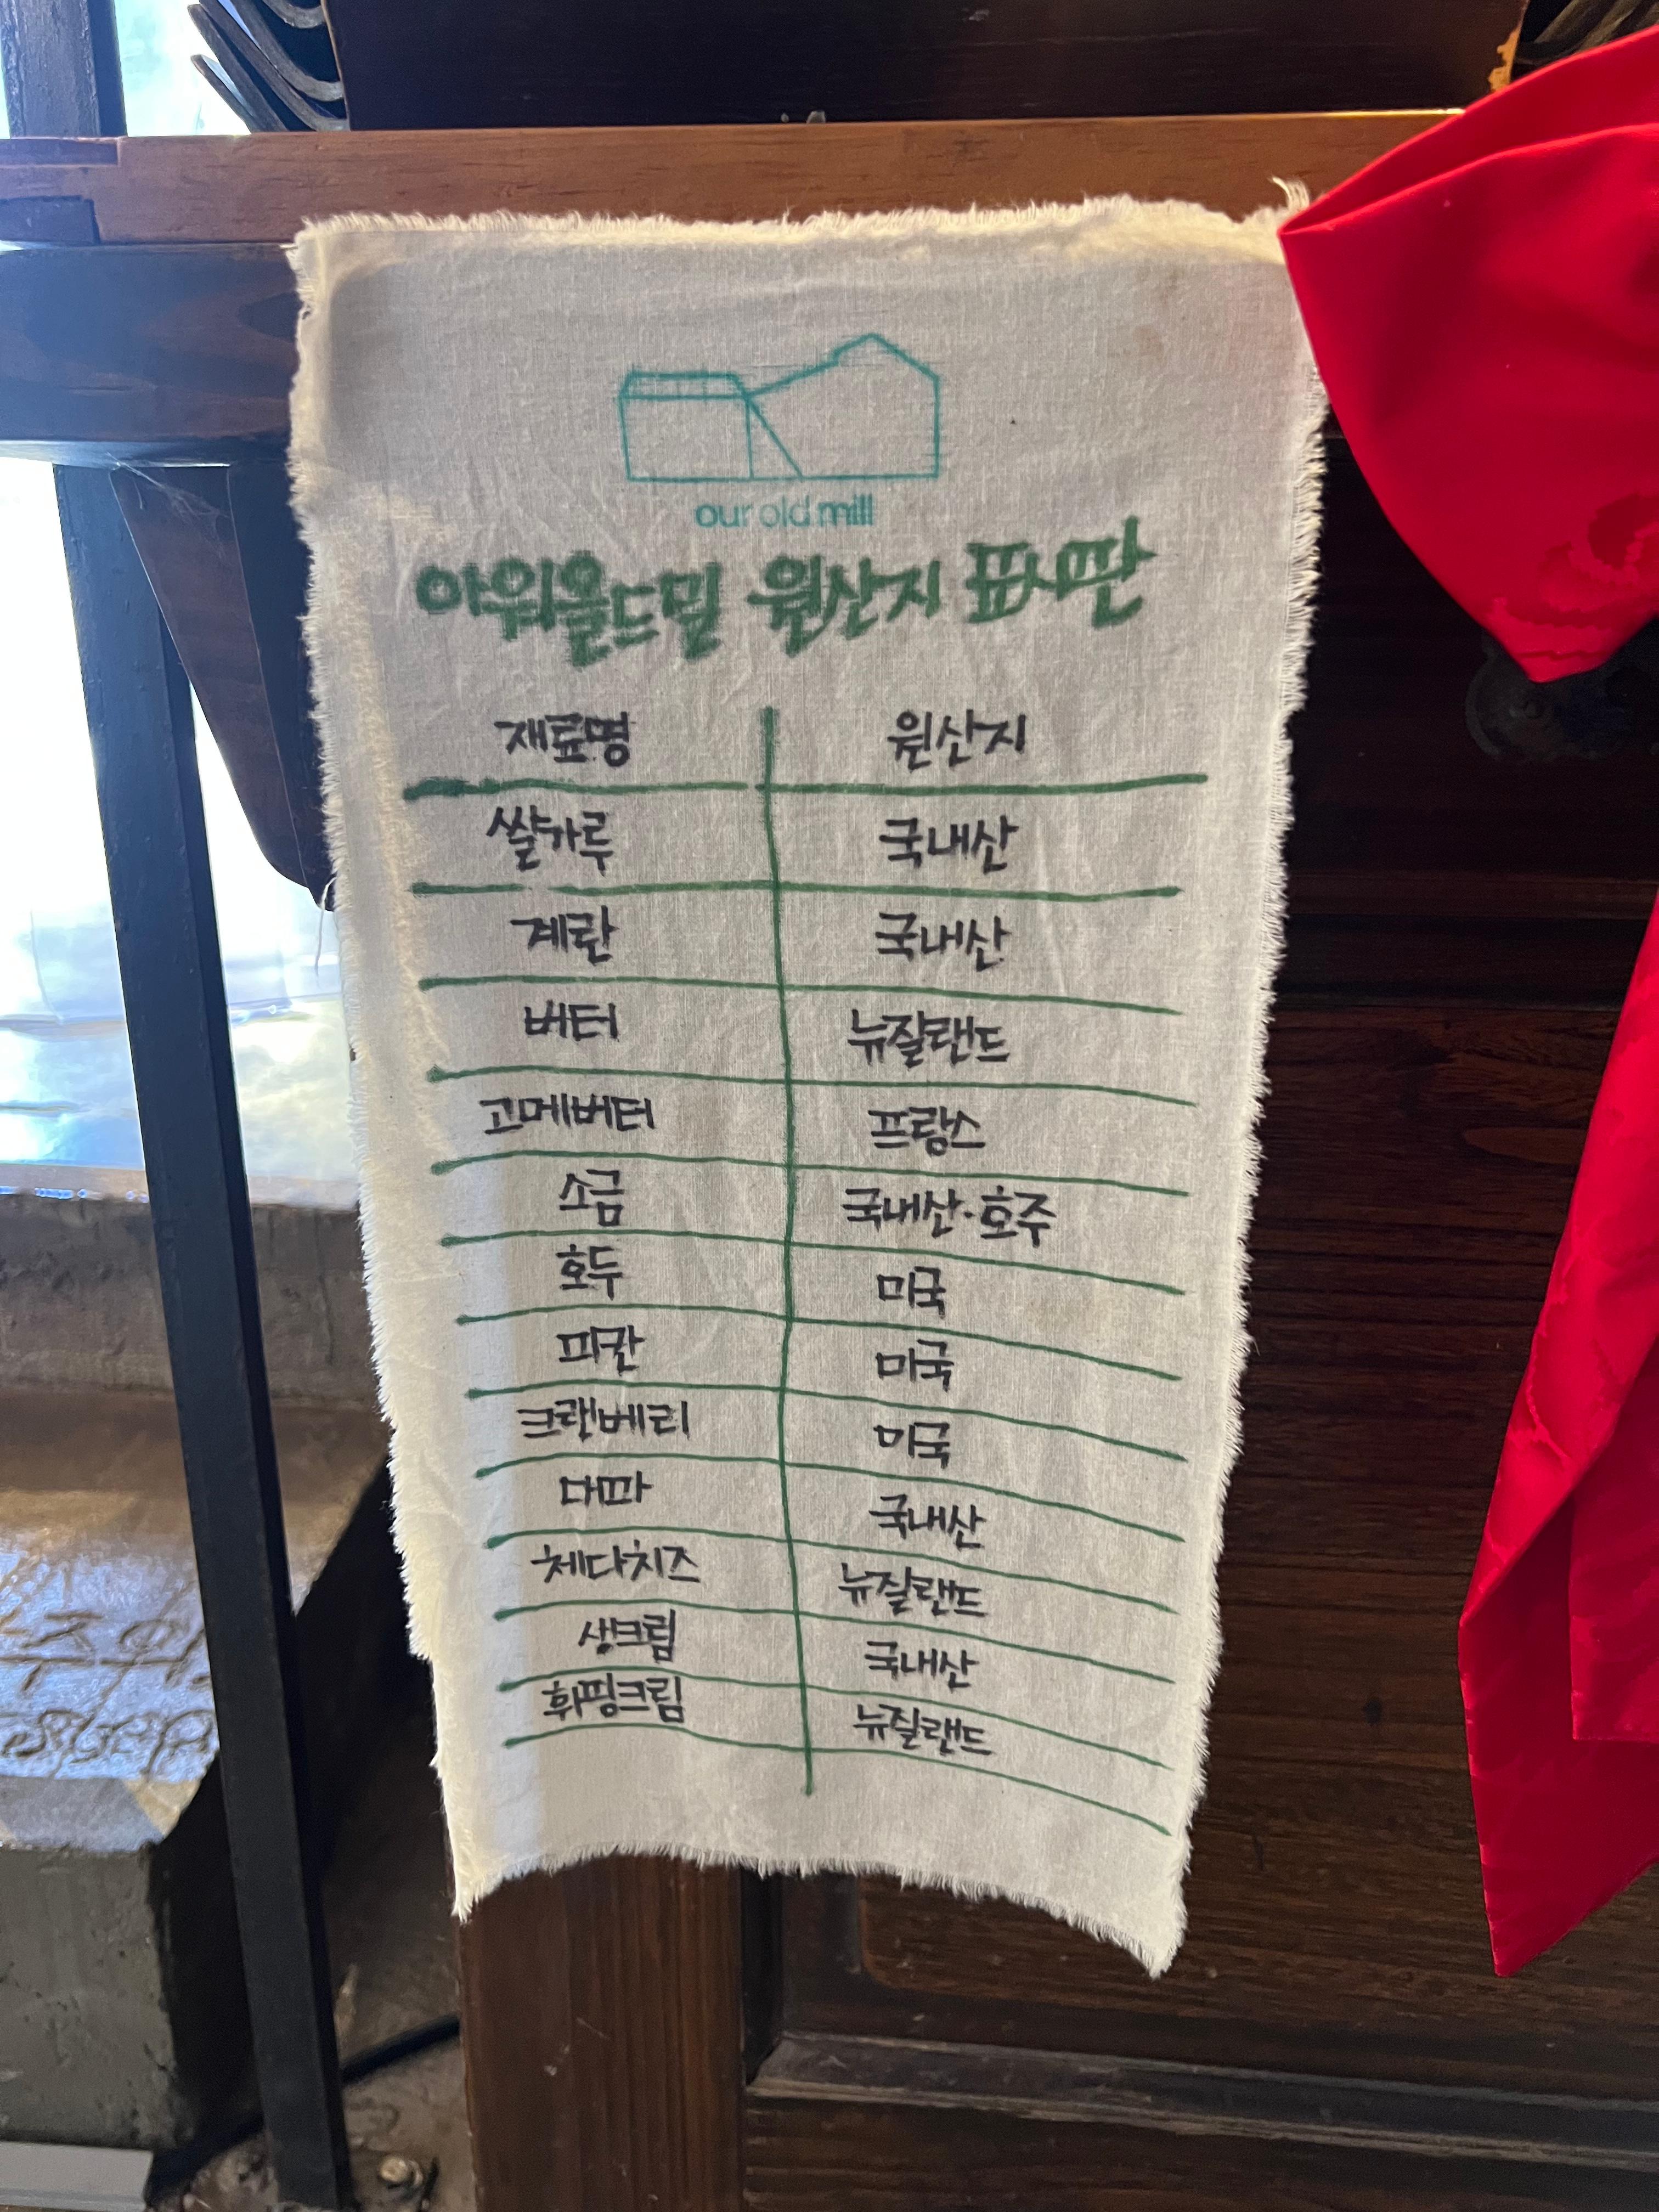 our old mill
아워올드밀 원산지 표시판
재료명 원산지
쌀가루 국내산
계란 국내산
버터 뉴질랜드
고메버터 프랑스
소금 국내산·호주
호두 미국
피칸 미국
크랜베리 미국
대파 국내산
체다치즈 뉴질랜드
생크림 국내산
휘핑크림 뉴질랜드